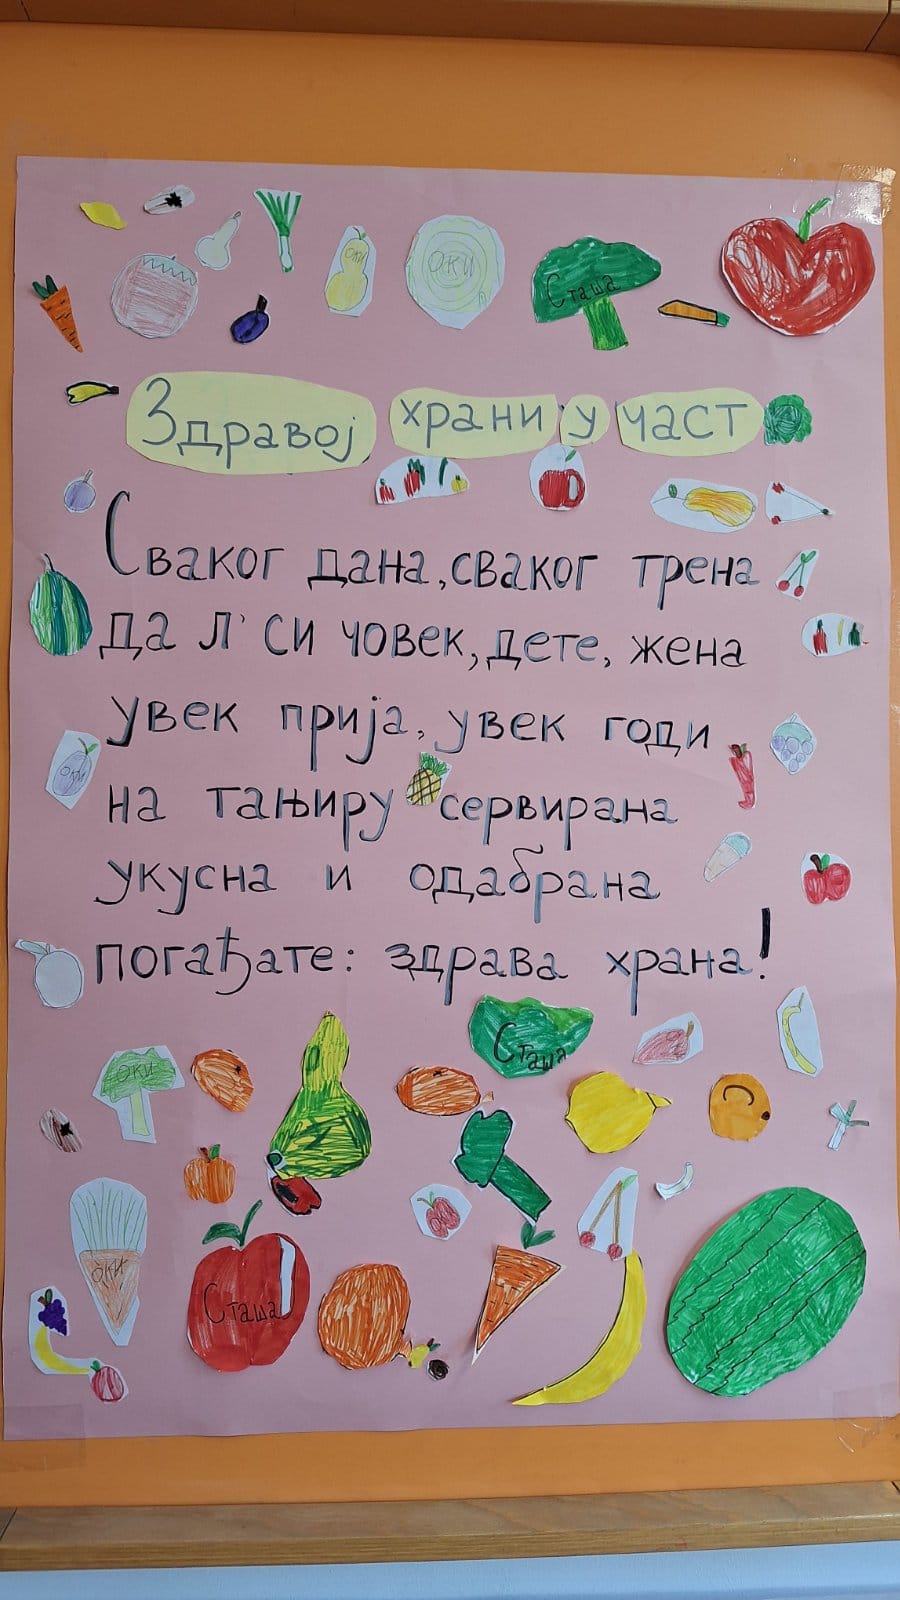 оки
оки
Сташа
Здравој храни у част
Сваког дана, сваког трена
да л' си човек, дете, жена
увек прија, увек годи
на тањиру сервирана
укусна и одабрана
погађате: здрава храна!
оки
Сташа
оки
оки
Сташа